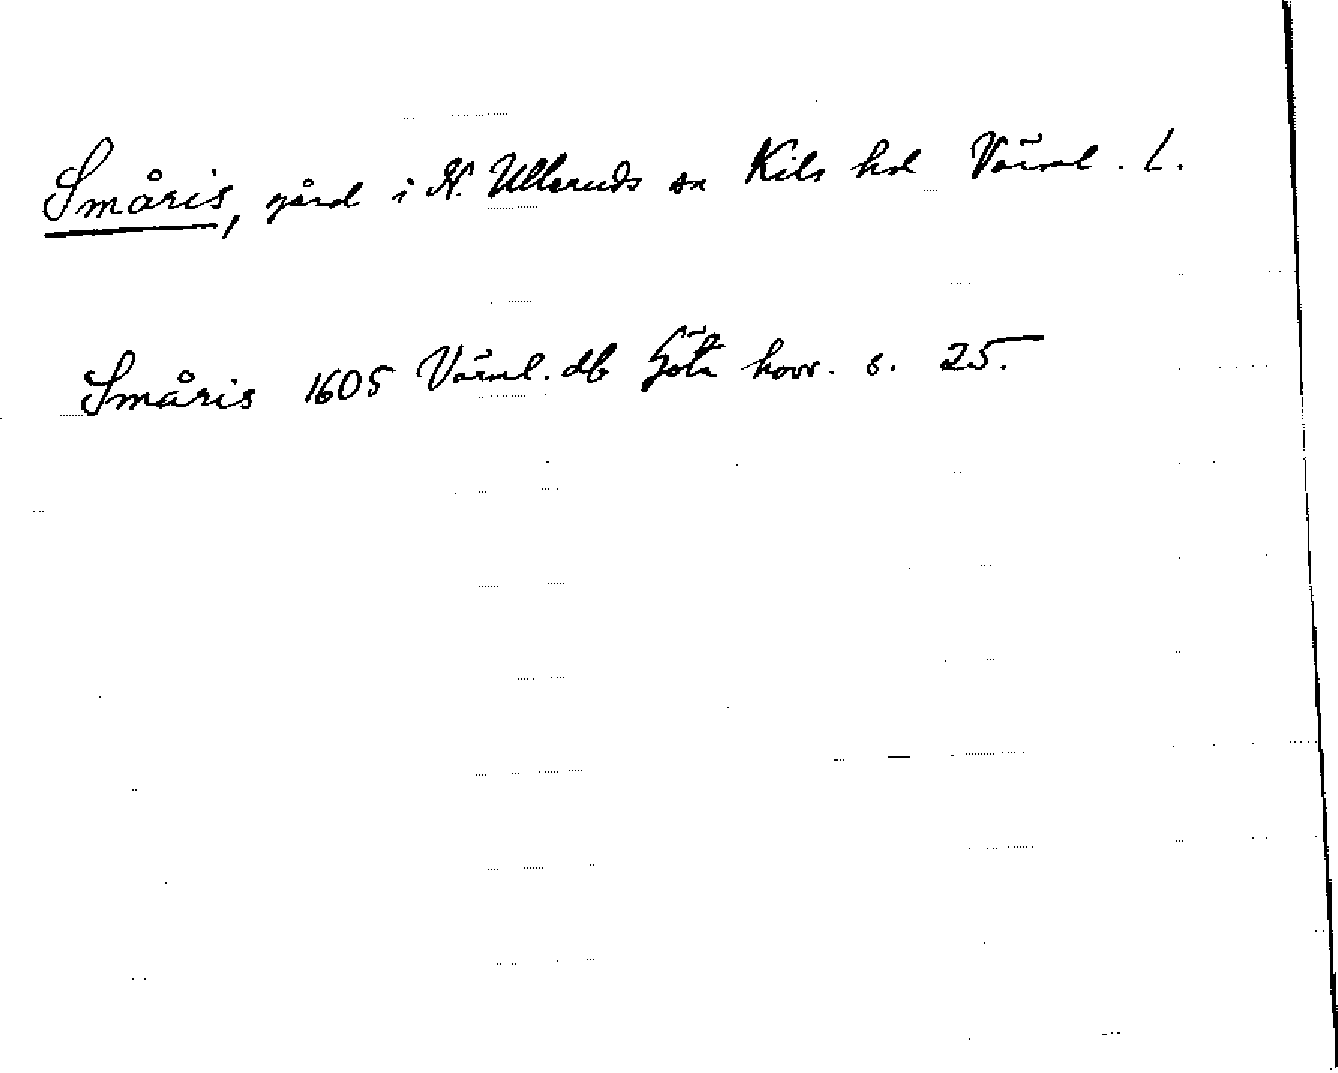 Småris, gård i N. Ulleruds sn Kils hd Värml. l.
Småris 1605 Värml. db Göta hovr. s. 25.